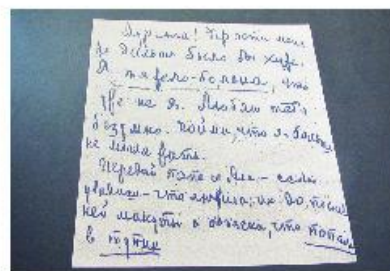 Мурлыга! Прости меня,
но дальше было бы хуже.
Я тяжело-больна, это
уже не я. Люблю тебя
безумно. Пойми, что я больше
не могла жить.
Передай папе и Але - если
увидишь - что любила их до послед-
ней минуты и объясни, что попала
в тупик